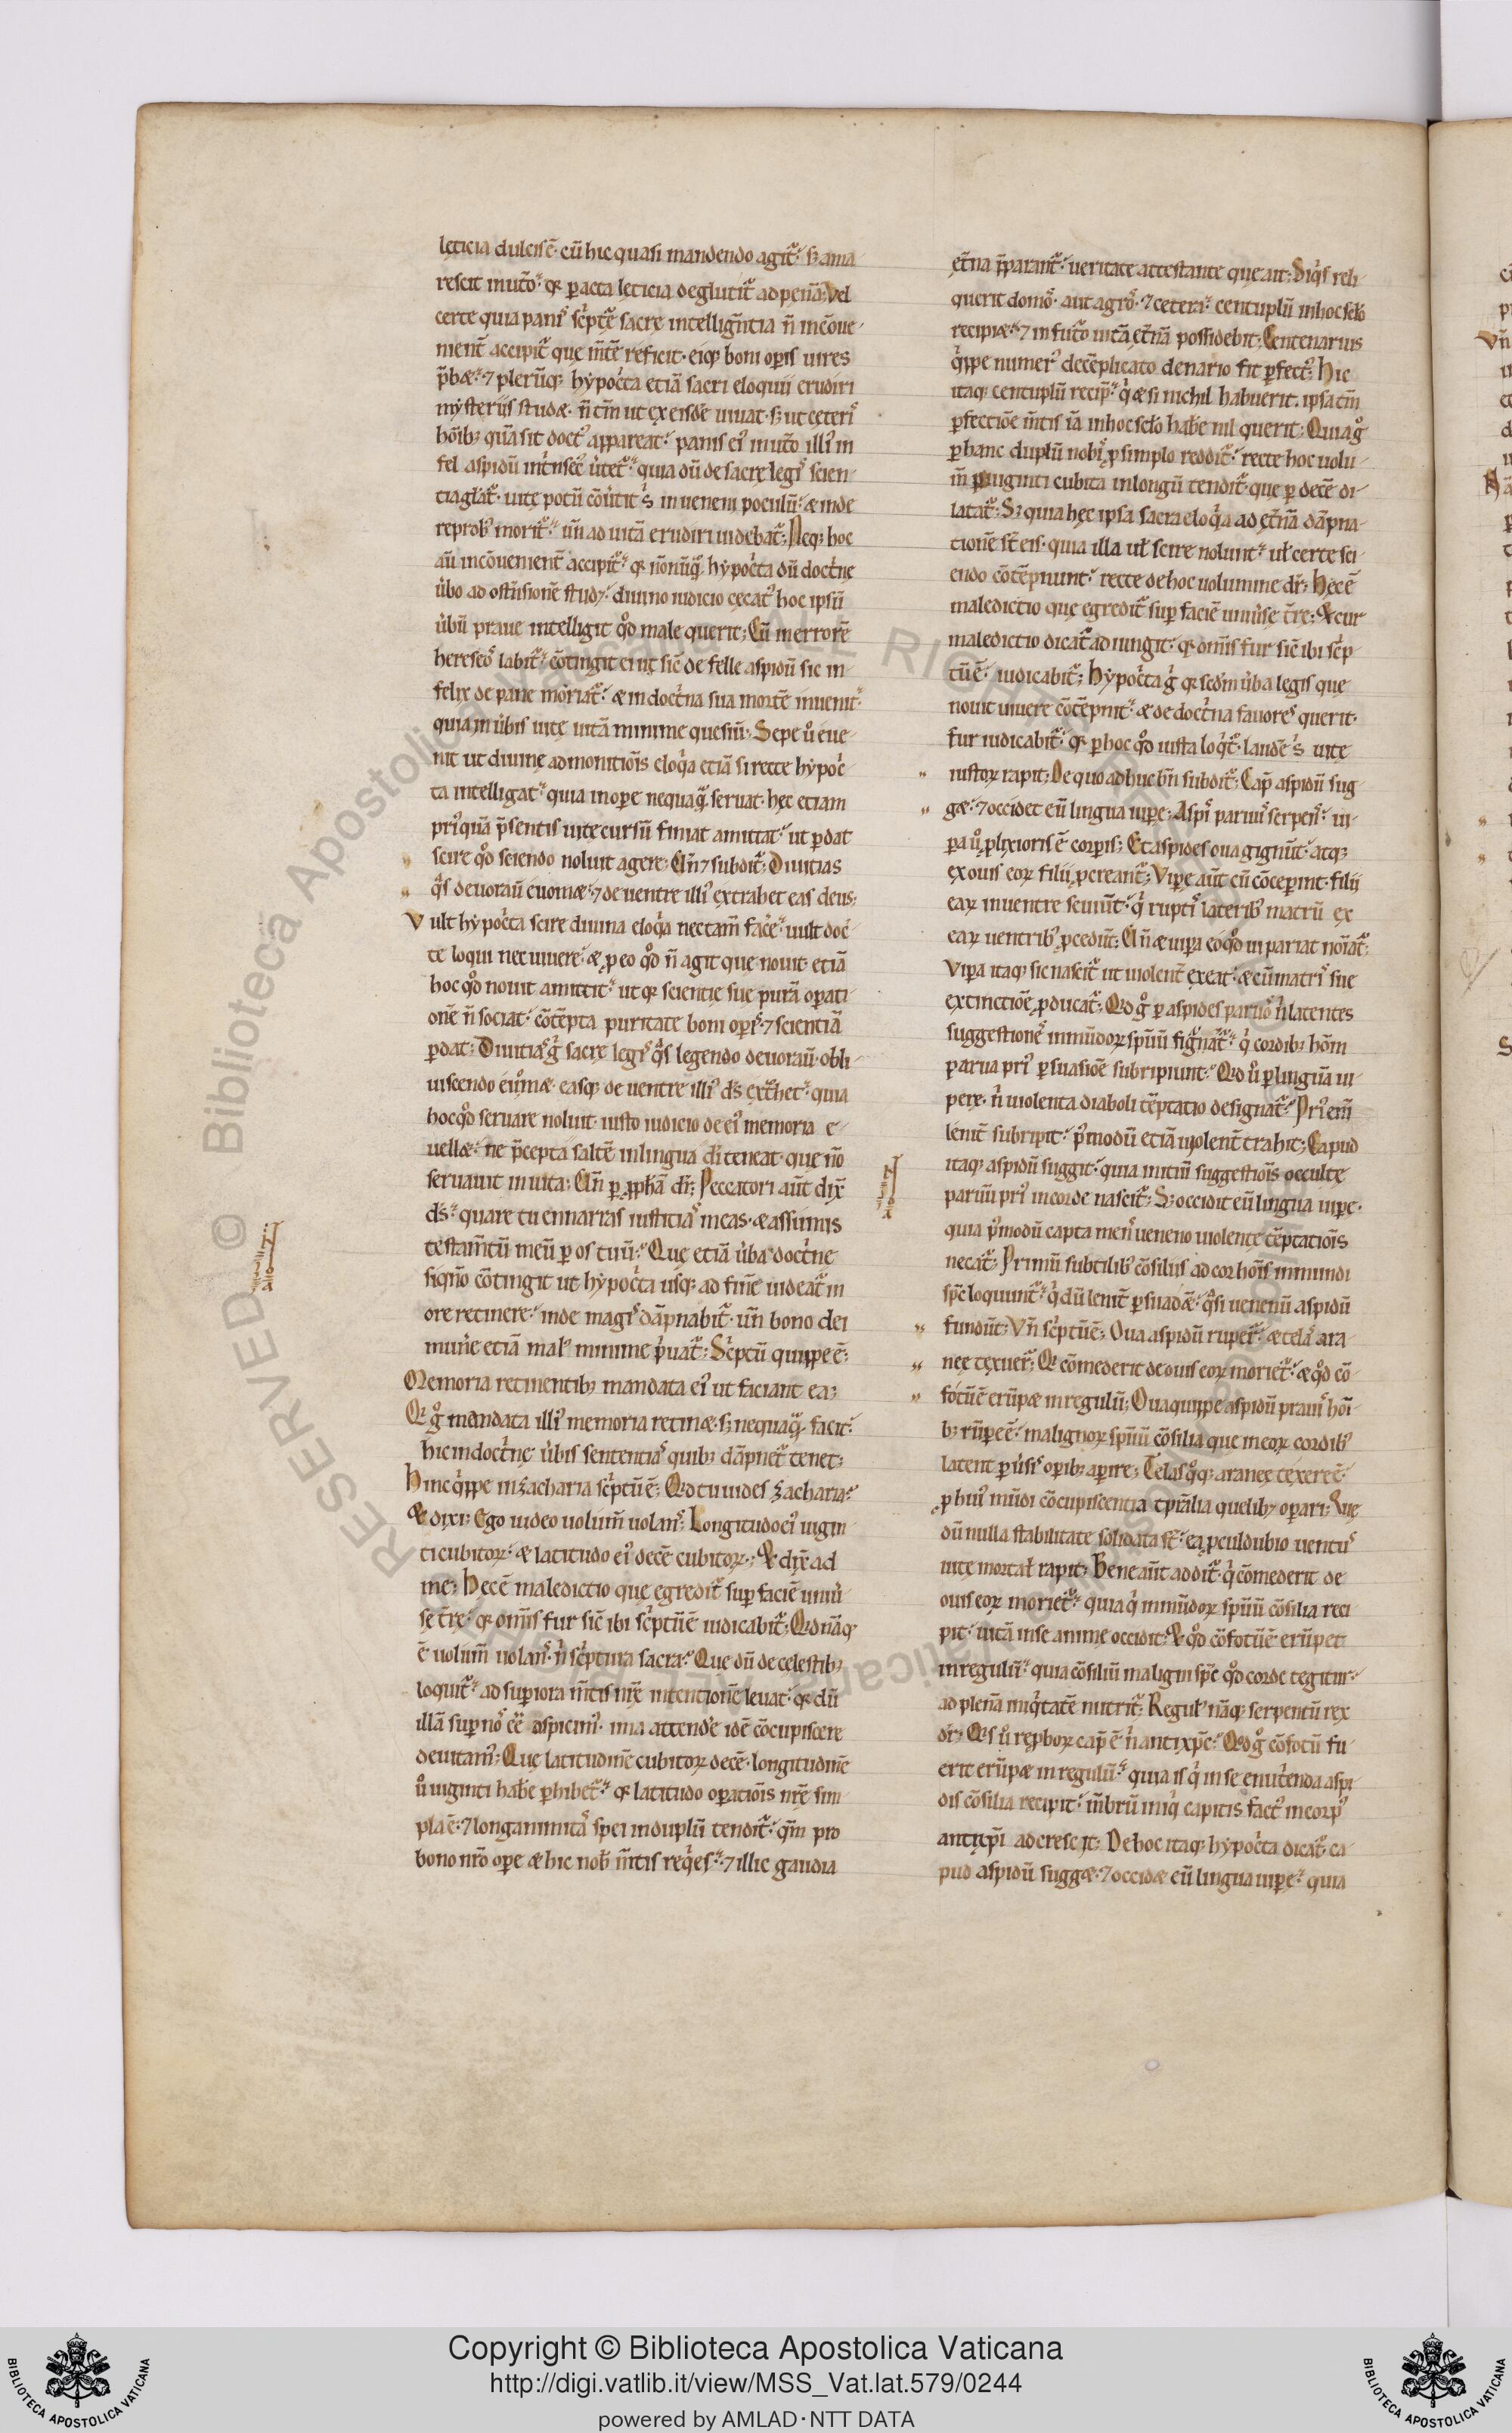 lęticia dulcis ē. cū hic quasi mandendo agit᷑. sꝫ ama
rescit intꝰ. qꝛ ꝑacta lęticia deglutit᷑ ad penā; Vel
certe quia panis sc̄ptę sacrę intelligentia ñ incōue
nient̄ accipit᷑ que m̄tē reficit. eiqꝫ boni oꝑis uires
p̄bet. ⁊ plerūqꝫ hypoc̓ta etiā sacri eloquii erudiri
mysteriis studet. ñ tm̄ ut ex eisdē uiuat. sꝫ ut ceteris
hōibꝫ quā sit doctꝰ appareat. panis eiꝰ intꝰ illiꝰ in
fel aspidū int̓nsecꝰ ūtet᷑. quia dū de sacrę legis scien
tia gl̄at᷑. uitę potū cōuertit s̓ in ueneni poculū. et inde
reprobꝰ morit᷑. un̄ ad uitā erudiri uidebat᷑; Neqꝫ hoc
aū inconuenient̄ accipit᷑. qꝛ nōnūqā hypoc̓ta dū doct̓nę
ūbo ad ostēsionē studꝫ. diuino iudicio cęcatꝰ hoc ipsū
ūbū praue intelligit qđ male querit; Cū in errorē
hereseos labit᷑. cōtingit ei ut sic̄ de felle aspidū sic in
felix de pane moriat᷑. et in doct̓na sua mortē inuenit.
quia in ūbis uitę uitā minime quesiuit. Sepe ū eue
nit ut diuinę admonitiōis eloq̓a etiā si recte hypoc̓
ta intelligat. quia in oꝑe nequaqā seruat. hęc etiam
priꝰquā p̄sentis uitę cursū finiat amittat. ut ꝑdat
scire qđ sciendo noluit agere; Un̄ ⁊ subdit᷑; Diuitias
q̄s deuorauit euomet. ⁊ de uentre illiꝰ extrahet eas deus;
Vult hypoc̓ta scire diuina eloq̓a nec tam̄ fac̓e. uult doc̓
te loqui nec uiuere. et ꝓ eo qđ ñ agit que nouit. etiā
hoc qđ nouit amittit. ut qꝛ scientię suę purā oꝑati
onē ñ sociat. cōtēpta puritate boni oꝑis. ⁊ scientiā
ꝑdat; Diuitias g̓ sacrę legis q̄s legendo deuorauit. obli
uiscendo euomet. easqꝫ de uentre illiꝰ ds̄ ext̓het. quia
hoc qđ seruare noluit. iusto iudicio de eiꝰ memoria e
uellet. ne p̄cepta saltē in lingua di teneat. que nō
seruauit in uita; Un̄ ꝑ ꝓphā dr̄; Peccatori aūt dix̄
ds̄. quare tu enarras iustitias meas. et assumis
testam̄tū meū ꝑ os tuū. Que etiā ūba doct̓nę
siqn̄o cōtingit ut hypoc̓ta usqꝫ ad finē uideat᷑ in
ore retinere. inde magis dāpnabit᷑. un̄ bono dei
mun̄e etiā malꝰ minime p̓uat᷑; Sc̓ptū quippe ē;
Memoria retinentibꝫ mandata eiꝰ ut faciant ea;
Qꝛ g̊ mandata illiꝰ memoria retinet. sꝫ nequaqā facit.
hic in doct̓nę ūbis sententias quibꝫ dāpnet᷑ tenet;
Hinc q̓ppe in zacharia sc̓ptū ē; Qđ tu uides zacharia.
Et dixi; Ego uideo uolum̄ uolans; Longitudo eiꝰ uigin
ti cubitoꝝ. et latitudo eiꝰ decē cubitoꝝ; Et dix̄ ad
me; Hęc ē maledictio que egredit᷑ suꝑ faciē uniū
sę t̄rę. qꝛ om̄is fur sic̄ ibi sc̓ptū ē iudicabit᷑; Qđ nāqꝫ
ē uolum̄ uolans. ñ sc̓ptura sacra. Que dū de celestibꝫ
loquit᷑. ad suꝑiora m̄tis nr̄ę intentionē leuat. qꝛ dū
illā suꝑnos ēē aspicimꝰ. ima attend̓e idē cōcupiscere
deuitamꝰ; Que latitudinē cubitoꝝ decē. longitudinē
ū uiginti habe ꝑhibet᷑. qꝛ latitudo oꝑatiōis nr̄ę sim
pla ē. ⁊ longanimitas spei in duplū tendit᷑. qm̄ pro
bono nr̄o oꝑe et hic nob̄ m̄tis req̓es. ⁊ illic gaudia
ęt̄na p̄parant᷑. ueritate attestante que ait; Siq̓s reli
querit domos. aut agros. ⁊ cetera. centuplū in hoc sc̄lo
recipiet. ⁊ in futꝰo uitā ęt̄nā possidebit; Centenarius
q̓ppe numerꝰ decēplicato denario fit ꝑfectꝰ; Hic
itaqꝫ centuplū recipit. q̓ etsi nichil habuerit. ipsa tm̄
ꝑfectiōe m̄tis iā in hoc sc̄lo habe nil querit; Quia g̊
ꝑ hanc duplū nobis ꝓ simplo reddit᷑. recte hoc uolu
m̄ ꝑ uiginti cubita in longū tendit᷑. que ꝑ decē di
latat᷑. Sꝫ quia hęc ipsa sacra eloq̓a ad ęt̄nā dāpna
tionē st̄ eis. quia illa ul̄ scire nolunt. ul̄ certe sci
endo cōtēpnunt. recte de hoc uolumine dr̄; Hęc ē
maledictio quę egredit᷑ suꝑ faciē uniūsę t̄rę; Et cur
maledictio dicat᷑ ad iungit. qꝛ om̄is fur sic̄ ibi sc̓p
tū ē. iudicabit᷑; Hypoc̓ta g̓ qꝛ scdm ūba legis que
nouit uiuere cōtēpnit. et de doct̓na fauores querit.
fur iudicabit᷑. qꝛ ꝑ hoc qđ iusta loq̓t᷑. laudē s̓ uitę
iustoꝝ rapit; De quo adhuc bn̄ subdit᷑; Cap̄ aspidū sug
get. ⁊ occidet eū lingua uiꝑę; Aspis paruus serpens. ui
ꝑa ū ꝓlixioris ē corꝑis; Et aspides oua gignūt. atqꝫ
ex ouis eoꝝ filii ꝓcreant᷑; Viꝑe aūt cū cōceꝑint. filii
eaꝝ in uentre seuiūt. q̓ ruptis lateribꝰ matrū ex
eaꝝ uentribꝰ ꝓcedūt; Un̄ et uiꝑa eo qđ ui pariat noīat᷑;
Viꝑa itaqꝫ sic nascit᷑ ut uiolent̄ exeat. et cū matris suę
extinctiōe ꝓducat᷑; Qđ g̊ ꝑ aspides paruos ñ latentes
suggestiones inmūdoꝝ spūū figurat᷑. q̓ cordibꝫ hōm
parua priꝰ ꝑsuasiōe subripiunt. Qđ ū ꝑ linguā ui
pere. ñ uiolenta diaboli tēptatio designat᷑. Priꝰ em̄
lenit̄ subripit. p̓modū etiā uiolent̄ trahit; Capud
itaqꝫ aspidū suggit. quia initiū suggestiōis occultę
paruū priꝰ in corde nascit᷑; Sꝫ occidit eū lingua uiꝑę.
quia p̓modū capta mens ueneno uiolentę tēptatiōis
necat᷑; Primū subtilibꝰ cōsiliis ad cor hōis inmundi
spc̄ loquunt᷑. q̓ dū lenit̄ ꝑsuadēt. q̓si uenenū aspidū
fundūt; Vn̄ sc̓ptū ē; Oua aspidū ruper̄. et telas ara
neę texuer̄; Qi cōmederit de ouis eoꝝ moriet᷑. et qđ cō
fotū ē erūpet in regulū; Oua quippe aspidū prauis hoī
bꝫ rūꝑe ē. malignoꝝ spūū cōsilia que in eoꝝ cordibꝰ
latent ꝑ ūsis oꝑibꝫ aꝑire; Telas q̊qꝫ araneę texere ē.
ꝓ huiꝰ mūdi cōcupiscentia tp̄alia quelibꝫ oꝑari; Quę
dū nulla stabilitate solidata st̄. ea ꝓculdubio uentus
uitę mortal̄ rapit; Bene aūt addit᷑. q̓ cōmederit de
ouis eoꝝ moriet᷑. quia q̓ inmūdoꝝ spūū cōsilia reci
pit. uitā in se animę occidit; Et qđ cōfotū ē erūpet
in regulū. quia cōsiliū maligni spc̄ qđ corde tegitur.
ad plenā iniq̓tatē nutrit᷑; Regulꝰ nāqꝫ serpentū rex
dr̄; Qis ū reꝓboꝝ cap̄ ē ñ antixpc̄. Qđ g̊ cōfotū fu
erit erūpet in regulū. quia is q̓ in se enut̓enda aspi
dis cōsilia recipit. m̄brū iniq̓ capitis factꝰ in corpꝰ
antixp̄i adcrescit; De hoc itaqꝫ hypoc̓ta dicat᷑. ca
pud aspidū sugget. ⁊ occidet eū lingua uiꝑę. quia
Copyright © Biblioteca Apostolica Vaticana
http://digi.vatlib.it/view/MSS_Vat.lat.579/0244
powered by AMLAD·NTT DATA